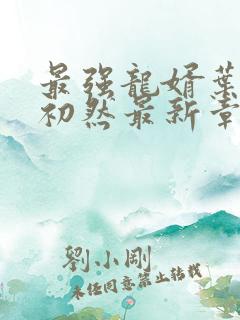 最强龍婿葉
初然最新章
劉小剛
未经同意禁止转载